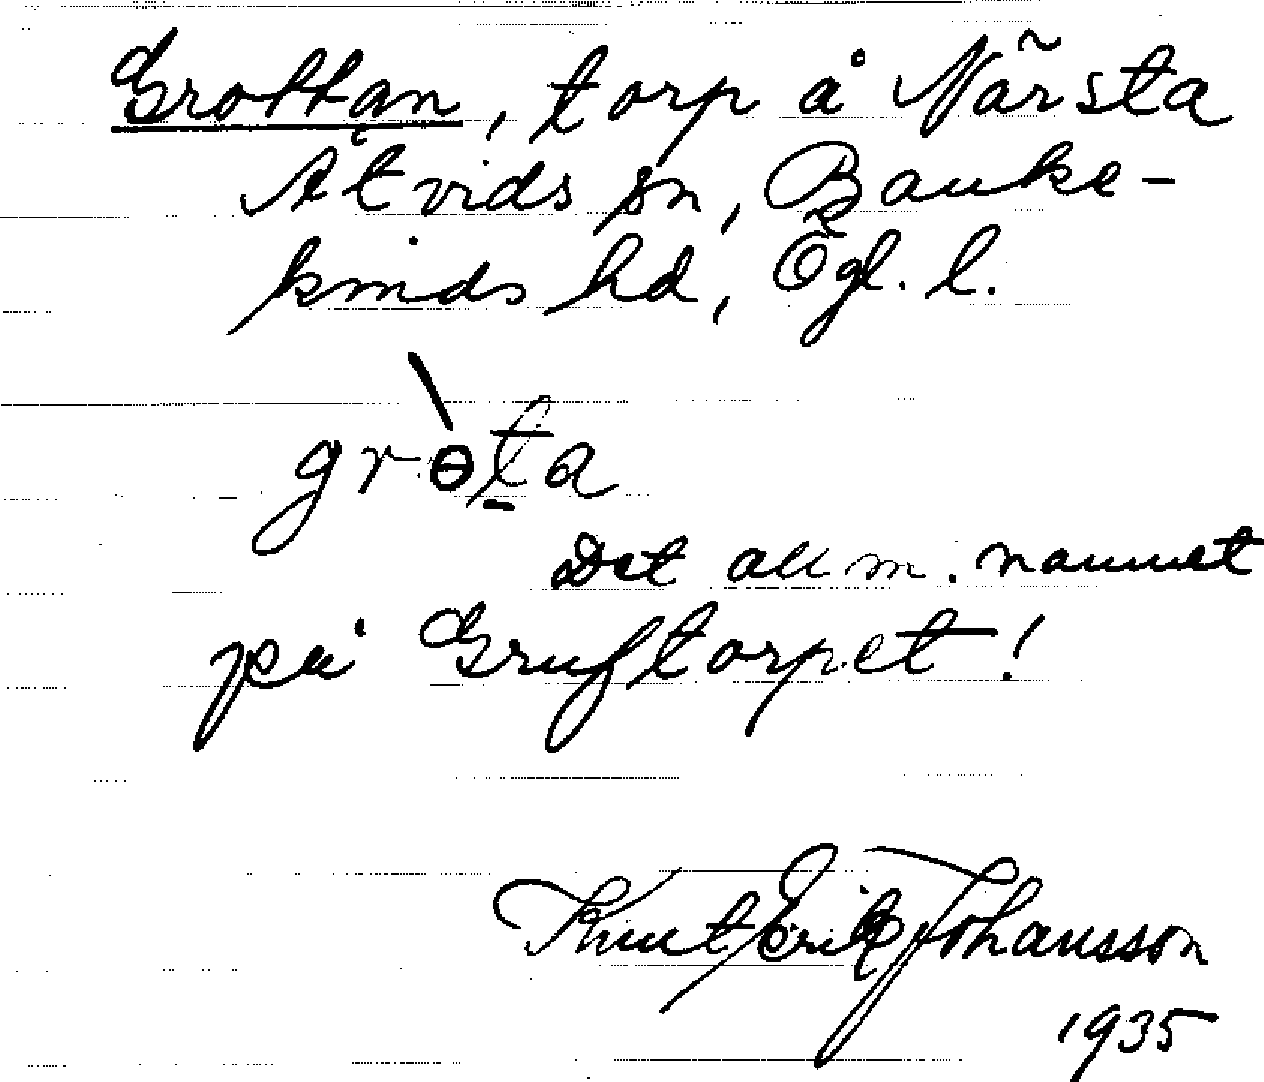 Grottan, torp å Närsta
Åtvids sn, Banke-
kinds hd, Ögl. l.
grɵ̀ta
Det allm. namnet
på Gruftorpet!
Knut Erik Johansson
1935